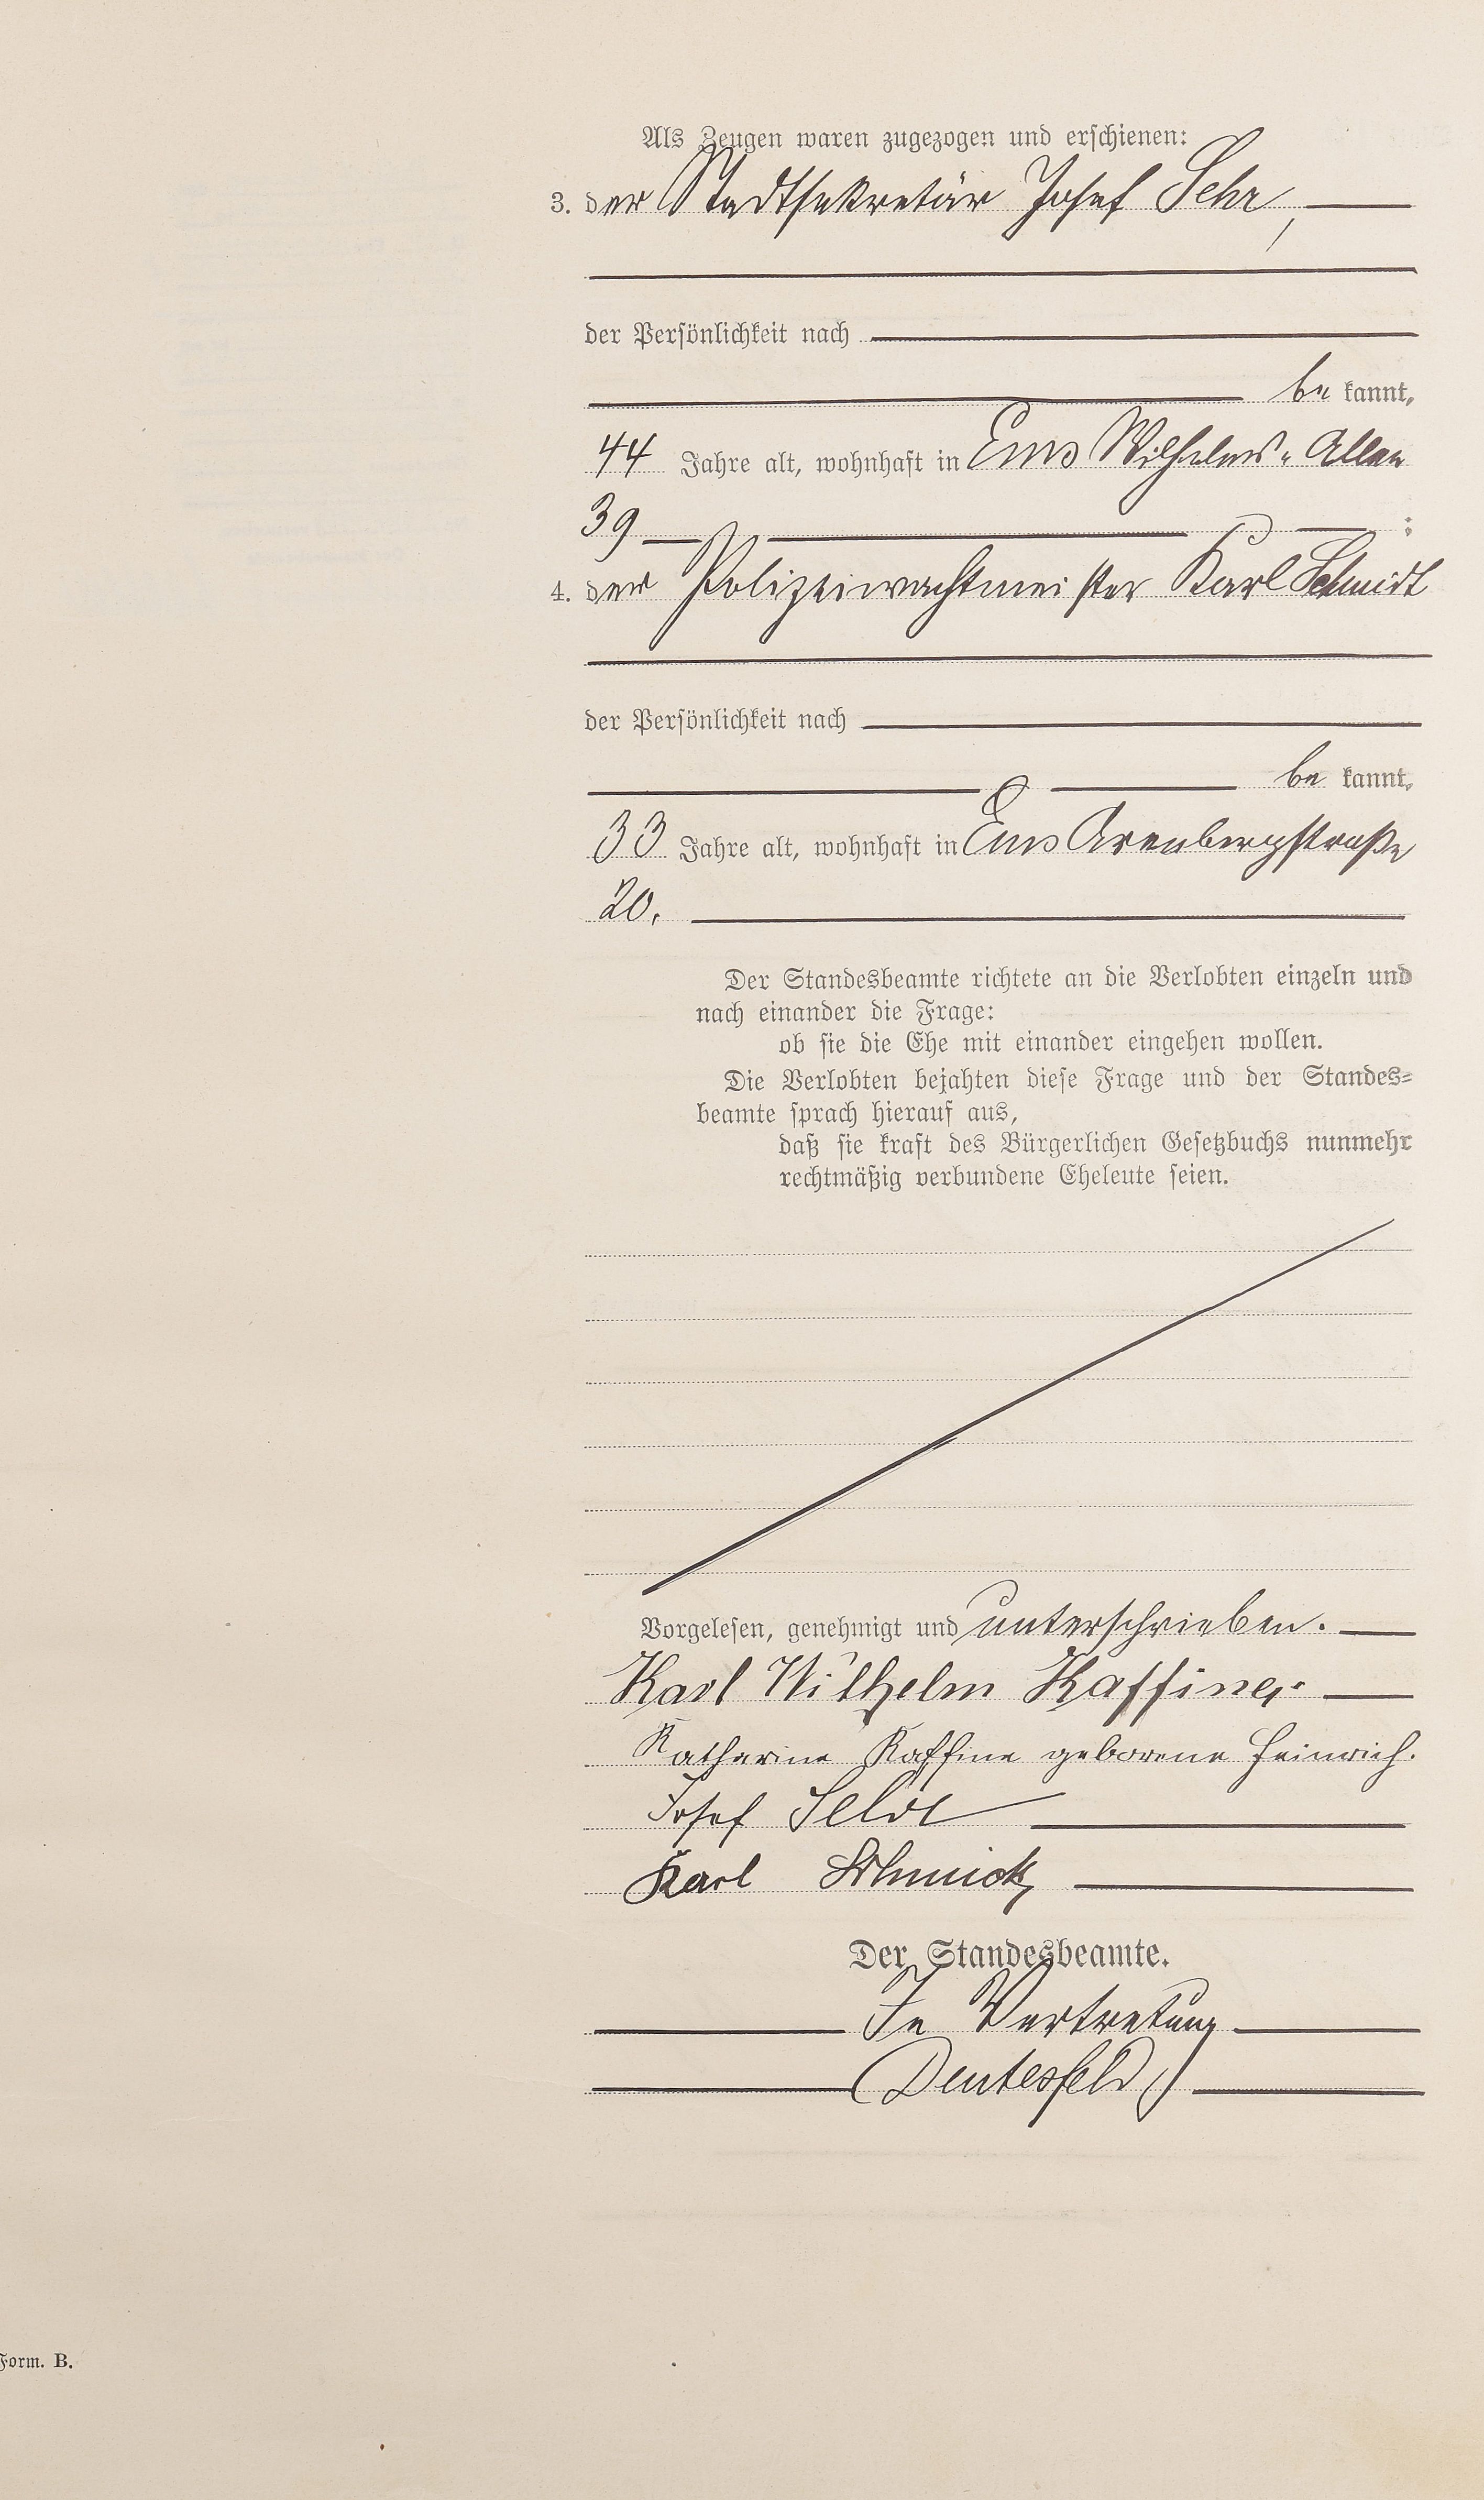 Als Zeugen waren zugezogen und erschienen:
3. der Stadtsekretär Josef Sehr,
der Persönlichkeit nach
be kannt,
44 Jahre alt, wohnhaft in Ems Wilhelms-Allee
39 ;
4. der Polizeiwachtmeister Karl Schmidt
der Persönlichkeit nach
be kannt,
33 Jahre alt, wohnhaft in Ems Arenbergstraße
20.
Der Standesbeamte richtete an die Verlobten einzeln und
nach einander die Frage:
ob sie die Ehe mit einander eingehen wollen.
Die Verlobten bejahten diese Frage und der Standes=
beamte sprach hierauf aus,
daß sie kraft des Bürgerlichen Gesetzbuchs nunmehr
rechtmäßig verbundene Eheleute seien.
Vorgelesen, genehmigt und unterschrieben.
Karl Wilhelm Kaffine.
Katharine Kaffine geborene Heinrich.
Josef Sehr
Karl Schmidt
Der Standesbeamte.
In Vertretung
(Deutesfeld)
Form. B.